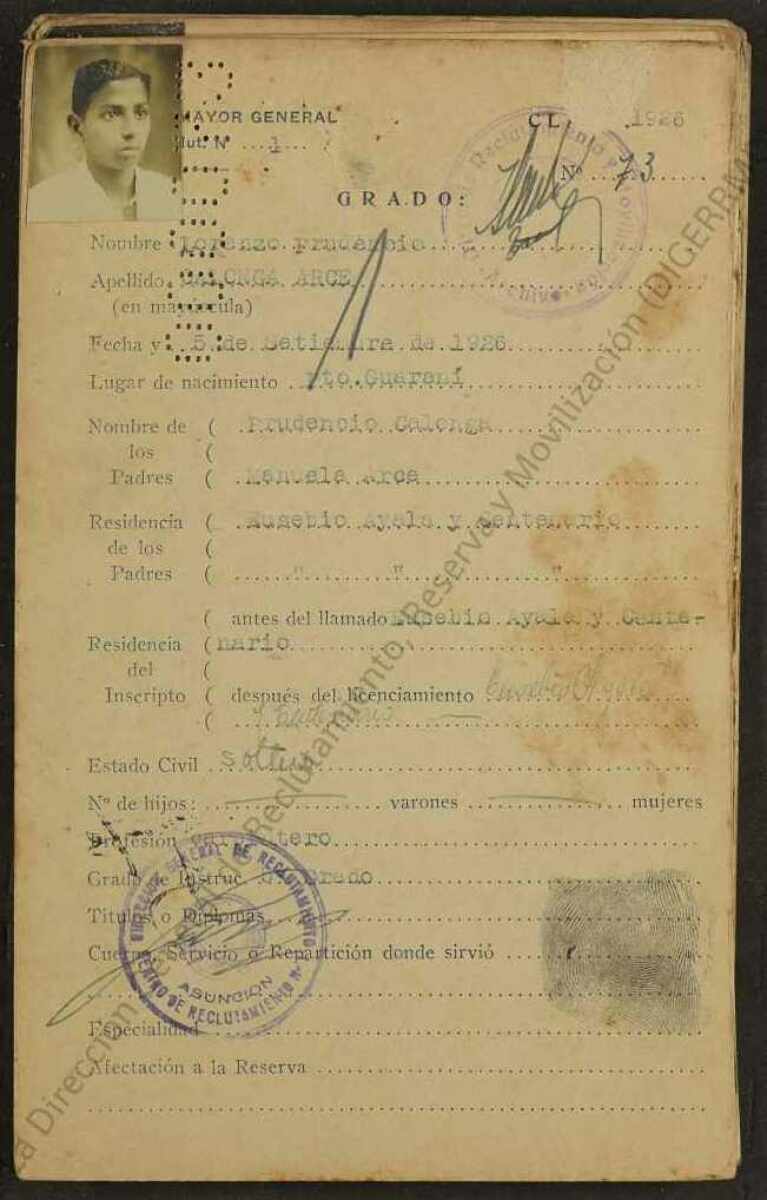 MAYOR GENERAL
CL. 1926
Mut. Nº ...1...
Nº ...73...
GRADO:
Nombre Lorenzo Prudencio
Apellido CALONGA ARCE
(en mayúscula)
Fecha y 5 de Setiembre de 1926
Lugar de nacimiento Pto. Guaraní
Nombre de ( Prudencio Calonga
los (
Padres ( Manuela Arce
Residencia ( Eusebio Ayala y Centenario
de los (
Padres ( " " "
( antes del llamado Eusebio Ayala y Cente-
Residencia ( nario
del (
Inscripto ( después del licenciamiento Eusebio Ayala
( y Centenario
Estado Civil Soltero
Nº de hijos: varones mujeres
Profesión
Grado de Instruc. Grado
Títulos o Diplomas
Cuerpo, Servicio o Repartición donde sirvió
Especialidad
Afectación a la Reserva
DIRECCION GENERAL DE RECLUTAMIENTO
ASUNCION
CENTRO DE RECLUTAMIENTO Nº
Reclutamiento y
la Dirección de Reclutamiento, Reserva y Movilización (DIGERRM